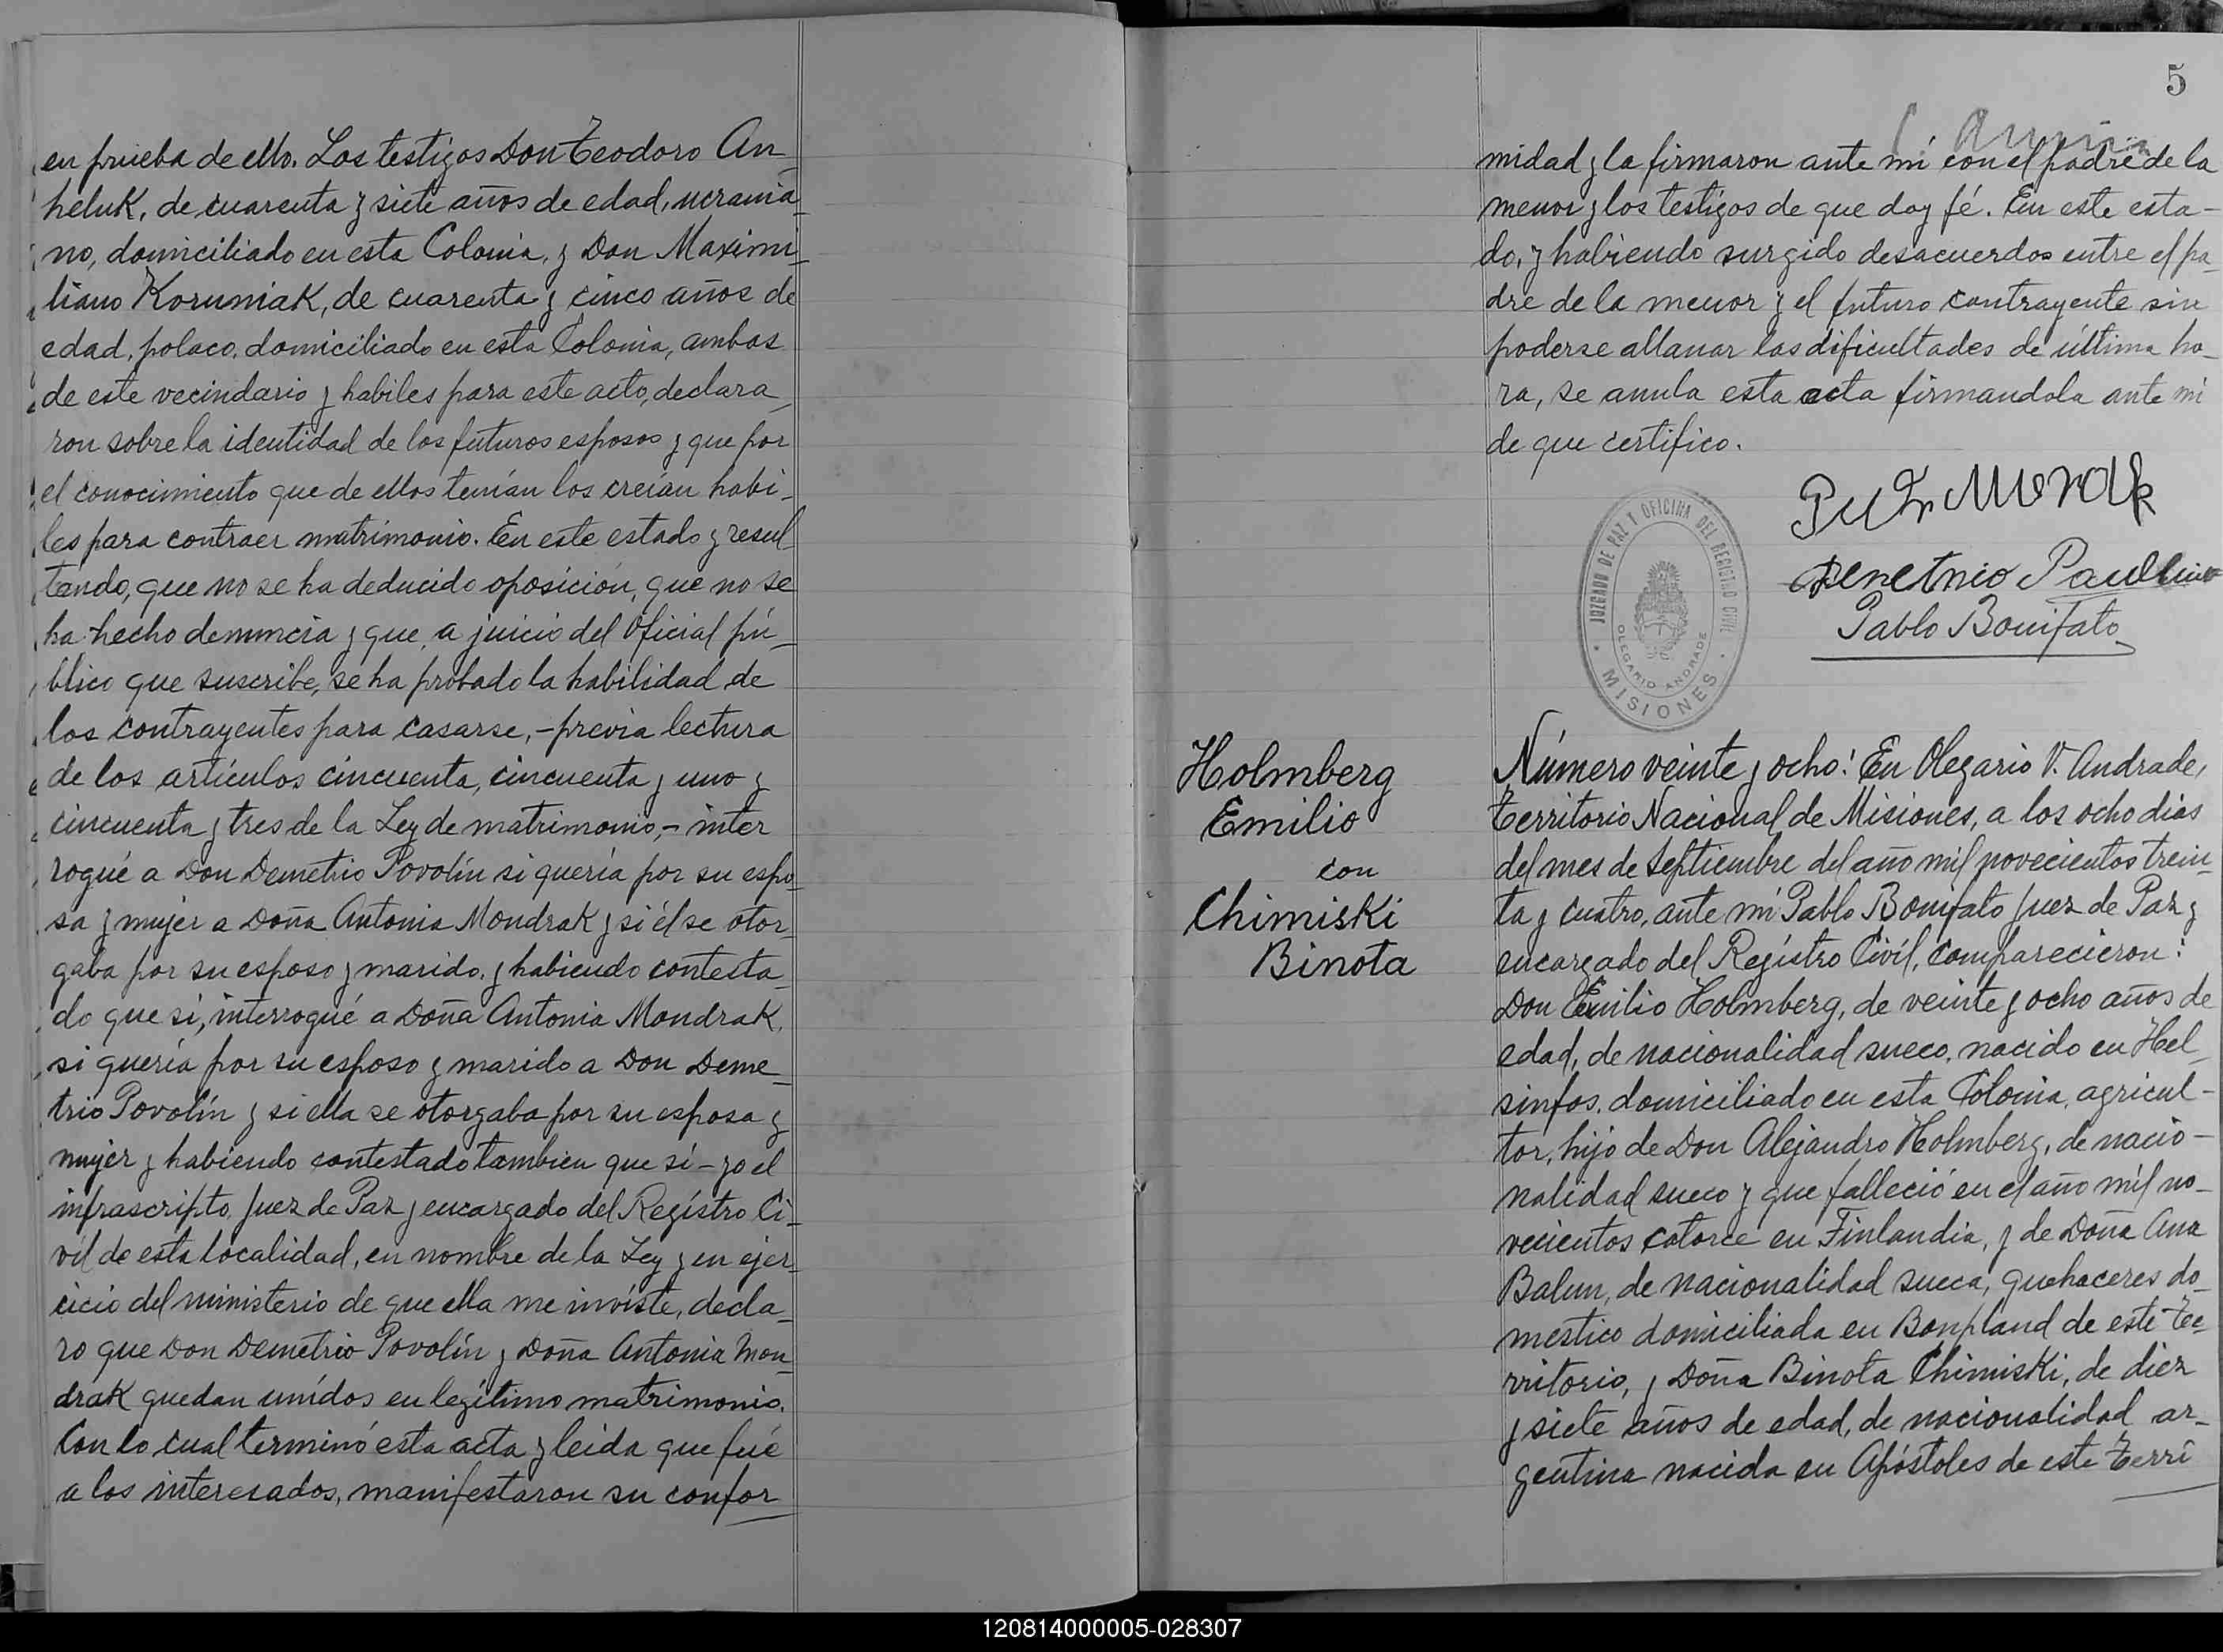 en prueba de ello. Los testigos Don Teodoro An-
heluk, de cuarenta y siete años de edad, ucrania-
no, domiciliado en esta Colonia, y Don Maximi-
liano Korumiak, de cuarenta y cinco años de
edad, polaco, domiciliado en esta Colonia, ambos
de este vecindario y habiles para este acto, declara-
ron sobre la identidad de los futuros esposos y que por
el conocimiento que de ellos tenían los creían habi-
les para contraer matrimonio. En este estado y resul-
tando, que no se ha deducido oposición, que no se
ha hecho denuncia y que, a juicio del Oficial pú-
blico que suscribe, se ha probado la habilidad de
los contrayentes para casarse, - previa lectura
de los artículos cincuenta, cincuenta y uno y
cincuenta y tres de la Ley de matrimonio, - inter
rogué a Don Demetrio Povolín si quería por su espo-
sa y mujer a Doña Antonia Mondrak y si él se otor-
gaba por su esposo y marido, y habiendo contesta-
do que sí, interrogué a Doña Antonia Mondrak,
si quería por su esposo y marido a Don Deme-
trio Povolín y si ella se otorgaba por su esposa y
mujer y habiendo contestado tambien que sí - yo el
infrascripto, Juez de Paz y encargado del Regístro Ci-
víl de esta localidad, en nombre de la Ley y en ejer-
cicio del ministerio de que ella me inviste, decla-
ro que Don Demetrio Povolín y Doña Antonia Mon-
drak quedan unídos en legítimo matrimonio.
Con lo cual terminó esta acta y leida que fué
a los interesados, manifestaron su confor
5
midad y la firmaron ante mí con el padre de la
menor y los testigos de que doy fé. En este esta-
do, y habiendo surgido desacuerdos entre el pa-
dre de la menor y el futuro contrayente sin
poderse allanar las dificultades de última ho-
ra, se anula esta acta firmandola ante mi
de que certifico.
JUZGADO DE PAZ Y OFICINA DEL REGISTRO CIVIL
OLEGARIO ANDRADE
MISIONES
Pablo Bonifato
Holmberg
Emilio
con
Chimiski
Binota
Número veinte y ocho: En Olegario V. Andrade,
Territorio Nacional de Misiones, a los ocho dias
del mes de Septiembre del año mil novecientos trein-
ta y cuatro, ante mí Pablo Bonifato Juez de Paz y
encargado del Regístro Civíl, comparecieron:
Don Emilio Holmberg, de veinte y ocho años de
edad, de nacionalidad sueco, nacido en Hel-
sinfos, domiciliado en esta Colonia, agricul-
tor, hijo de Don Alejandro Holmberg, de nacio-
nalidad sueco y que falleció en el año míl no-
vecientos catorce en Finlandia, y de Doña Ana
Balun, de nacionalidad sueca, quehaceres do-
mestico domiciliada en Bonpland de este te-
rritorio, y Doña Binota Chimiski, de diez
y siete años de edad, de nacionalidad ar-
gentina nacida en Apóstoles de este Terri
120814000005-028307